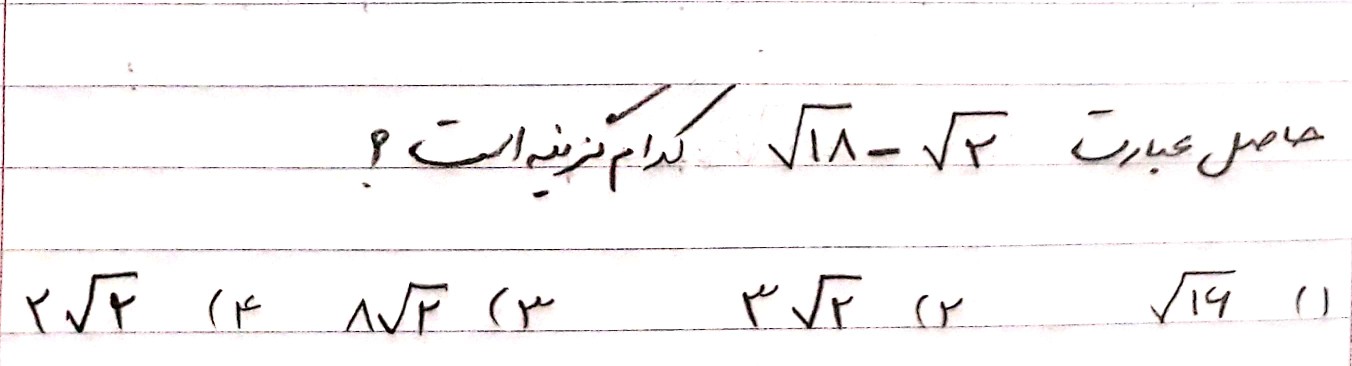 حاصل عبارت √۱۸ - √۲ کدام گزینه است ؟
۱) √۱۶ ۲) ۳√۲ ۳) ۸√۲ ۴) ۲√۲